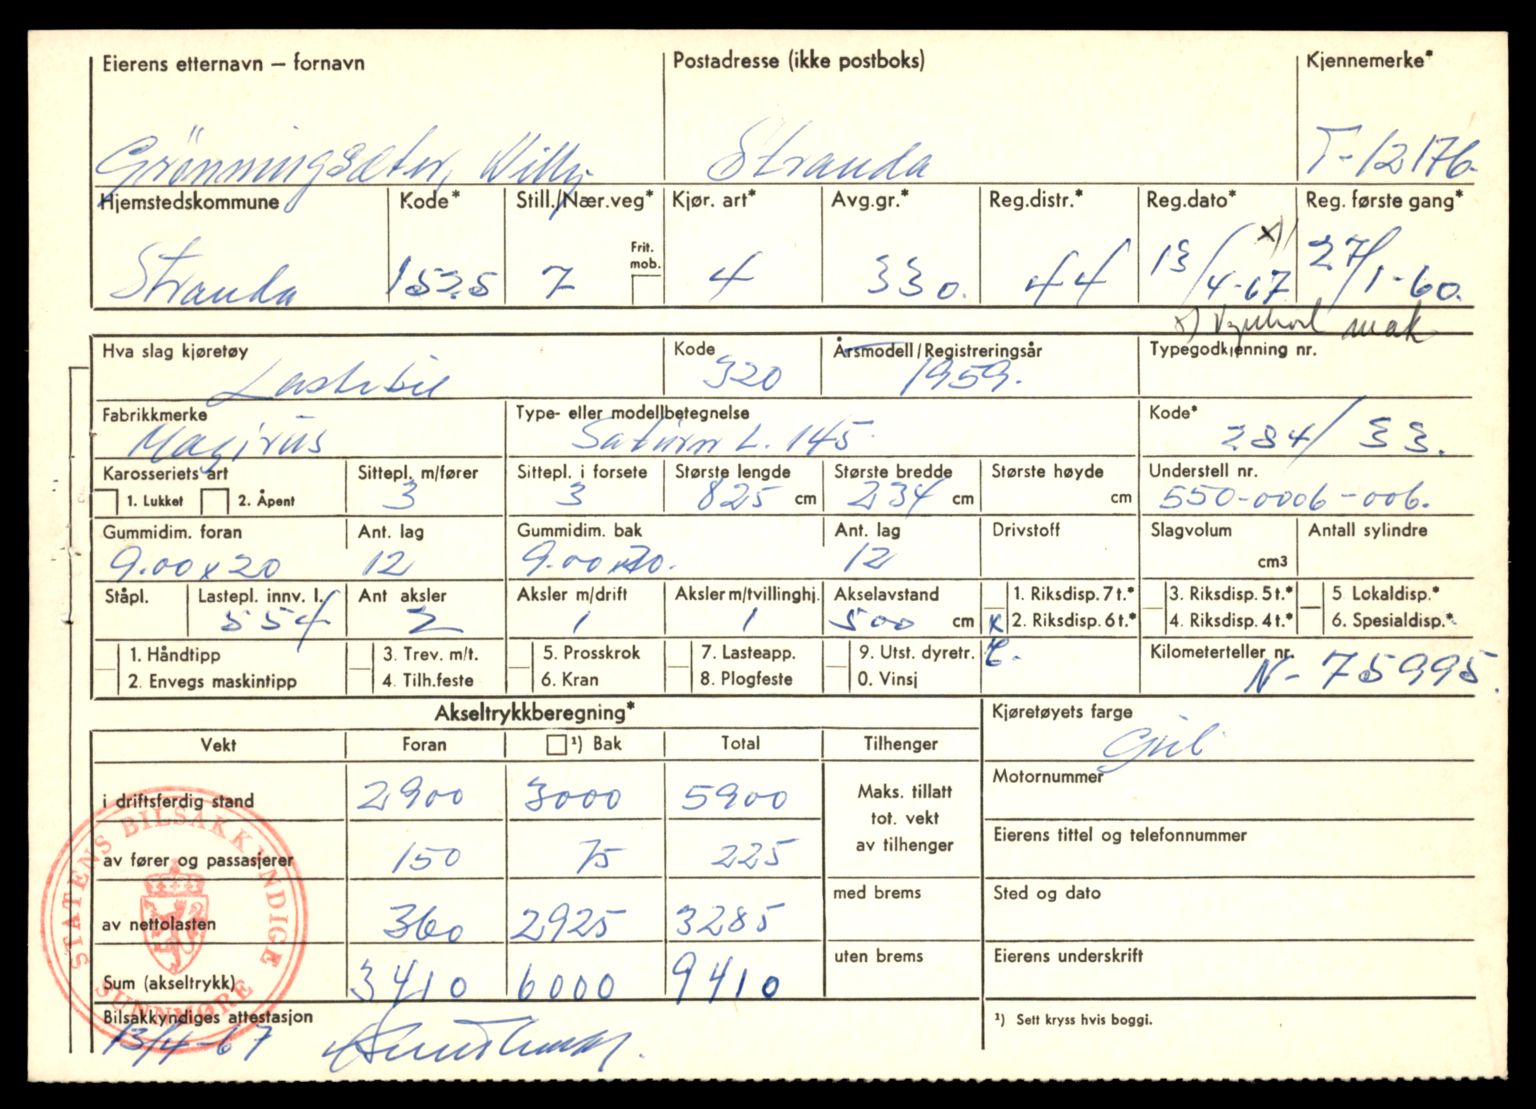 Eierens etternavn – fornavn Postadresse (ikke postboks) Kjennemerke*
Grönningsæter, Willy Stranda T-12176.
Hjemstedskommune Kode* Still./Nær.veg* Kjør. art* Avg.gr.* Reg.distr.* Reg.dato* Reg. første gang*
Frit. mob.
Stranda 1525 7 4 330. 44 13/4-67 x) 27/1-60.
x) mak
Hva slag kjøretøy Kode Årsmodell/Registreringsår Typegodkjenning nr.
Lastebil 320 1959.
Fabrikkmerke Type- eller modellbetegnelse Kode*
Magirus Saturn L. 145 284/33.
Karosseriets art Sittepl. m/fører Sittepl. i forsete Største lengde Største bredde Største høyde Understell nr.
1. Lukket 2. Åpent 3 3 825 cm 234 cm cm 550-0006-006.
Gummidim. foran Ant. lag Gummidim. bak Ant. lag Drivstoff Slagvolum Antall sylindre
9.00x20 12 9.00x20. 12 cm3
Ståpl. Lastepl. innv. l. Ant aksler Aksler m/drift Aksler m/tvillinghj. Akselavstand 1. Riksdisp. 7 t.* 3. Riksdisp. 5 t.* 5 Lokaldisp.*
554 2 1 1 500 cm x 2. Riksdisp. 6 t.* 4. Riksdisp. 4 t.* 6. Spesialdisp.*
1. Håndtipp 3. Trev. m/t. 5. Prosskrok 7. Lasteapp. 9. Utst. dyretr. Kilometerteller nr.
2. Envegs maskintipp 4. Tilh.feste 6. Kran 8. Plogfeste 0. Vinsj N-75995.
Akseltrykkberegning* Kjøretøyets farge
Vekt Foran ¹) Bak Total Tilhenger
Motornummer
i driftsferdig stand 2900 3000 5900 Maks. tillatt
tot. vekt
av tilhenger
Eierens tittel og telefonnummer
av fører og passasjerer 150 75 225
med brems Sted og dato
av nettolasten 360 2925 3285
uten brems Eierens underskrift
Sum (akseltrykk) 3410 6000 9410
Bilsakkyndiges attestasjon ¹) Sett kryss hvis boggi.
13/4-67
STATENS BILSAKKYNDIGE
SUNNMØRE